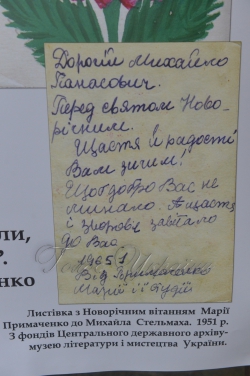 Дорогий Михайло
Панасович.
Перед святом Ново-
річним.
Щастя й радості
Вам зичим!
Щоб добро Вас не
минало. А щастя
і здоровє завітало
до Вас.
1965 г
Від Примаченко
Марії
ЛИ,
Р.
НКО
Листівка з Новорічним вітанням Марії
Примаченко до Михайла Стельмаха. 1951 р.
З фондів Центрального державного архіву-
музею літератури і мистецтва України.